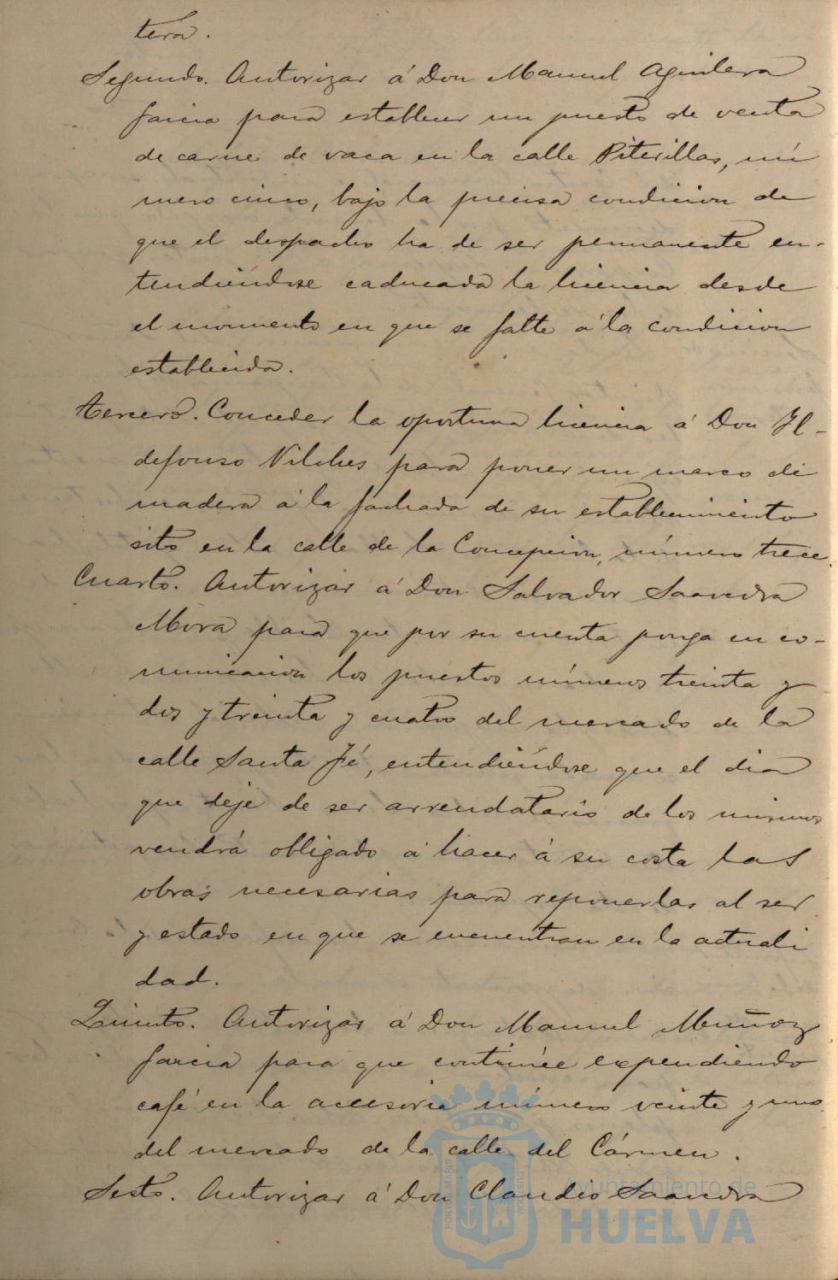 tera.
Segundo. Autorizar á Don Manuel Aguilera
Garcia para establecer un puesto de venta
de carne de vaca en la calle Piterillas, nú
mero cinco, bajo la precisa condicion de
que el despacho ha de ser permanente en-
tendiéndose caducada la licencia desde
el momento en que se falte á la condicion
establecida.
Tercero. Conceder la oportuna licencia á Don Il-
defonso Vilches para poner un marco de
madera á la fachada de su establecimiento
sito en la calle de la Concepcion, número trece.
Cuarto. Autorizar á Don Salvador Saavedra
Mora para que por su cuenta ponga en co-
municacion los puestos números treinta y
dos y treinta y cuatro del mercado de la
calle Santa Fé, entendiéndose que el dia
que deje de ser arrendatario de los mismos
vendrá obligado á hacer á su costa las
obras necesarias para reponerlas al ser
y estado en que se encuentran en la actuali
dad.
Quinto. Autorizar á Don Manuel Muñoz
Garcia para que continúe expendiendo
café en la accesoria número veinte y uno
del mercado de la calle del Cármen.
Sesto. Autorizar á Don Claudio Saavedra
Ayuntamiento de
HUELVA